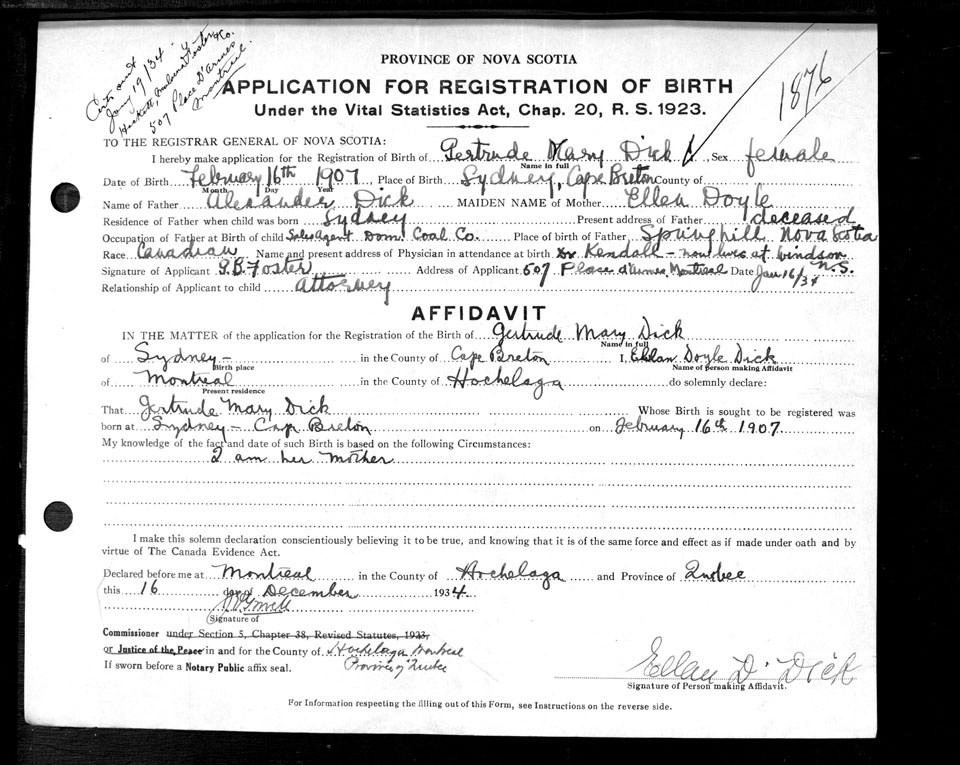 Certs out
Jany 19/34
Hackett, Foster & Co.
507 Place D'armes
Montreal.
1876
PROVINCE OF NOVA SCOTIA
APPLICATION FOR REGISTRATION OF BIRTH
Under the Vital Statistics Act, Chap. 20, R. S. 1923.
TO THE REGISTRAR GENERAL OF NOVA SCOTIA:
I hereby make application for the Registration of Birth of Gertrude Mary Dick Sex female
Name in full
Date of Birth February 16th 1907 Place of Birth Sydney, Cape Breton County of
Month Day Year
Name of Father Alexander Dick MAIDEN NAME of Mother Ellen Doyle
Residence of Father when child was born Sydney Present address of Father deceased
Occupation of Father at Birth of child Sales Agent Dom. Coal Co. Place of birth of Father Springhill Nova Scotia
Race Canadian Name and present address of Physician in attendance at birth Dr Kendall - now lives at Windsor N.S.
Signature of Applicant G.B. Foster Address of Applicant 507 Place d'armes, Montreal Date Jan 16/34
Relationship of Applicant to child Attorney
AFFIDAVIT
IN THE MATTER of the application for the Registration of the Birth of Gertrude Mary Dick
Name in full
of Sydney - in the County of Cape Breton I, Ellan Doyle Dick
Birth place Name of person making Affidavit
of Montreal in the County of Hochelaga do solemnly declare:
Present residence
That Gertrude Mary Dick Whose Birth is sought to be registered was
born at Sydney - Cape Breton on February 16th 1907.
My knowledge of the fact and date of such Birth is based on the following Circumstances:
I am her mother
I make this solemn declaration conscientiously believing it to be true, and knowing that it is of the same force and effect as if made under oath and by
virtue of The Canada Evidence Act.
Declared before me at Montreal in the County of Hochelaga and Province of Quebec
this 16 day of December 1934
(Signature of
Commissioner under Section 5, Chapter 38, Revised Statutes, 1923,
or Justice of the Peace in and for the County of Hochelaga Montreal
Province of Quebec
If sworn before a Notary Public affix seal.
Ellan D. Dick
Signature of Person making Affidavit.
For Information respecting the filling out of this Form, see Instructions on the reverse side.